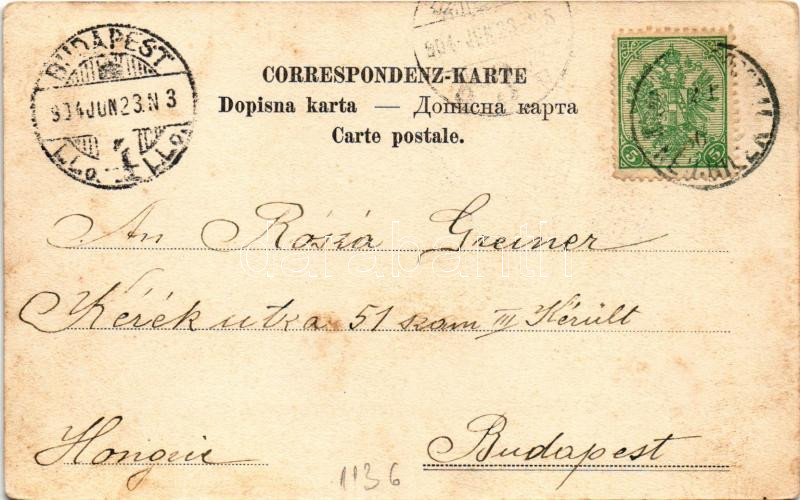 BUDAPEST
904 JUN 23. N 3
CORRESPONDENZ-KARTE
Dopisna karta — Дописна карта
Carte postale.
5 5
An Rósza Greiner
Kérék utza 51 szam III Kérült
Hongrie Budapest
1136
darabanth